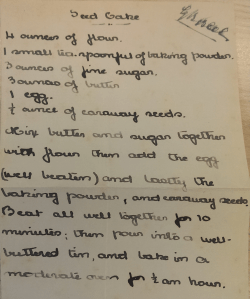 Seed Cake
4 ounces of flour.
1 small tea-spoonful of baking powder.
3 ounces of fine sugar.
3 ounces of butter
1 egg.
½ ounce of caraway seeds.
Mix butter and sugar together
with flour then add the egg
(well beaten) and lastly the
baking powder, and caraway seeds.
Beat all well together for 10
minutes; then pour into a well-
buttered tin, and bake in a
moderate oven for ½ an hour.